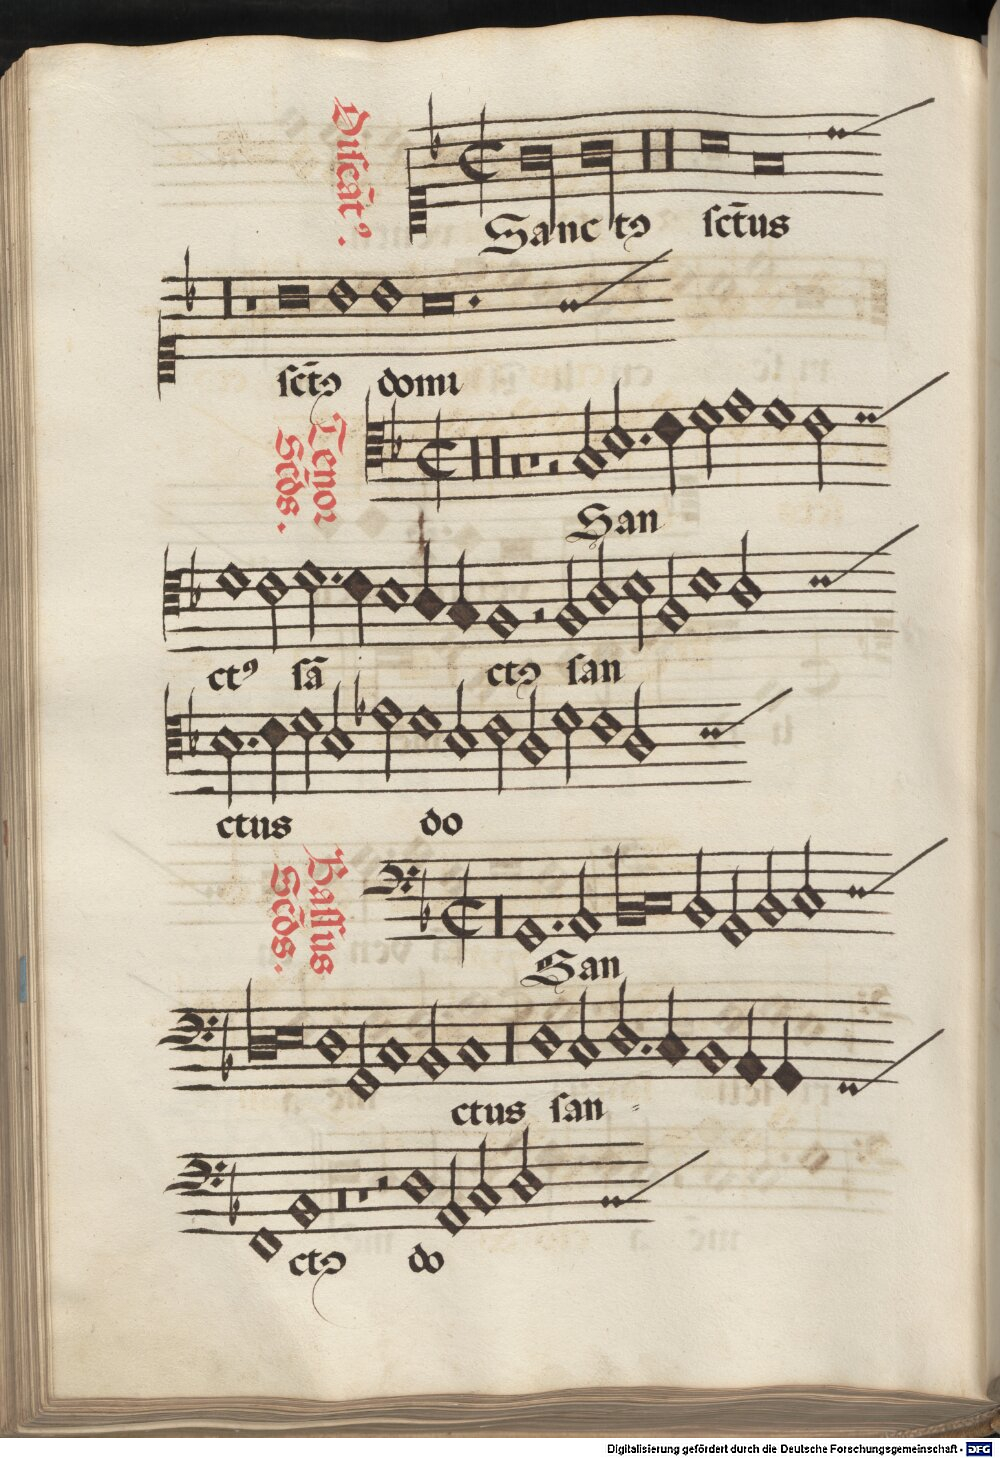 Discāt⁹.
Sanc tꝰ sct̄us
sct̄ꝰ domi
Tenor
Scd̄s.
San
ct⁹ sā ctꝰ san
ctus do
Bassus
Scd̄s.
San
ctus san -
ctꝰ do
Digitalisierung gefördert durch die Deutsche Forschungsgemeinschaft - DFG